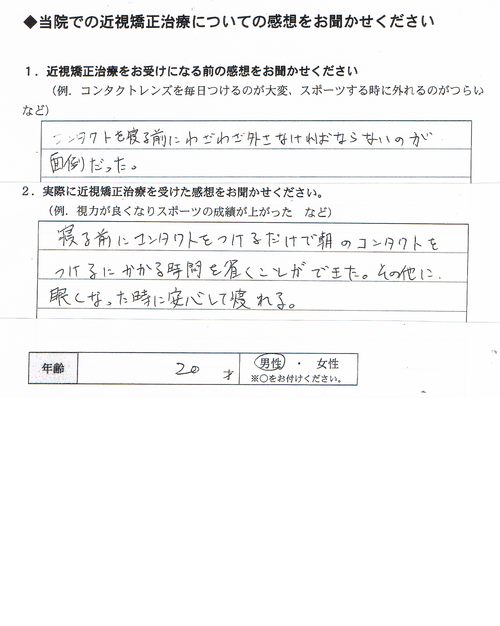 ◆当院での近視矯正治療についての感想をお聞かせください
1．近視矯正治療をお受けになる前の感想をお聞かせください
（例．コンタクトレンズを毎日つけるのが大変、スポーツする時に外れるのがつらい
など）
コンタクトを寝る前にわざわざ外さなければならないのが
面倒だった。
2．実際に近視矯正治療を受けた感想をお聞かせください。
（例．視力が良くなりスポーツの成績が上がった　など）
寝る前にコンタクトをつけるだけで朝のコンタクトを
つけるにかかる時間を省くことができた。その他に、
眠くなった時に安心して寝れる。
年齢 20 才 男性 ・ 女性
※○をお付けください。